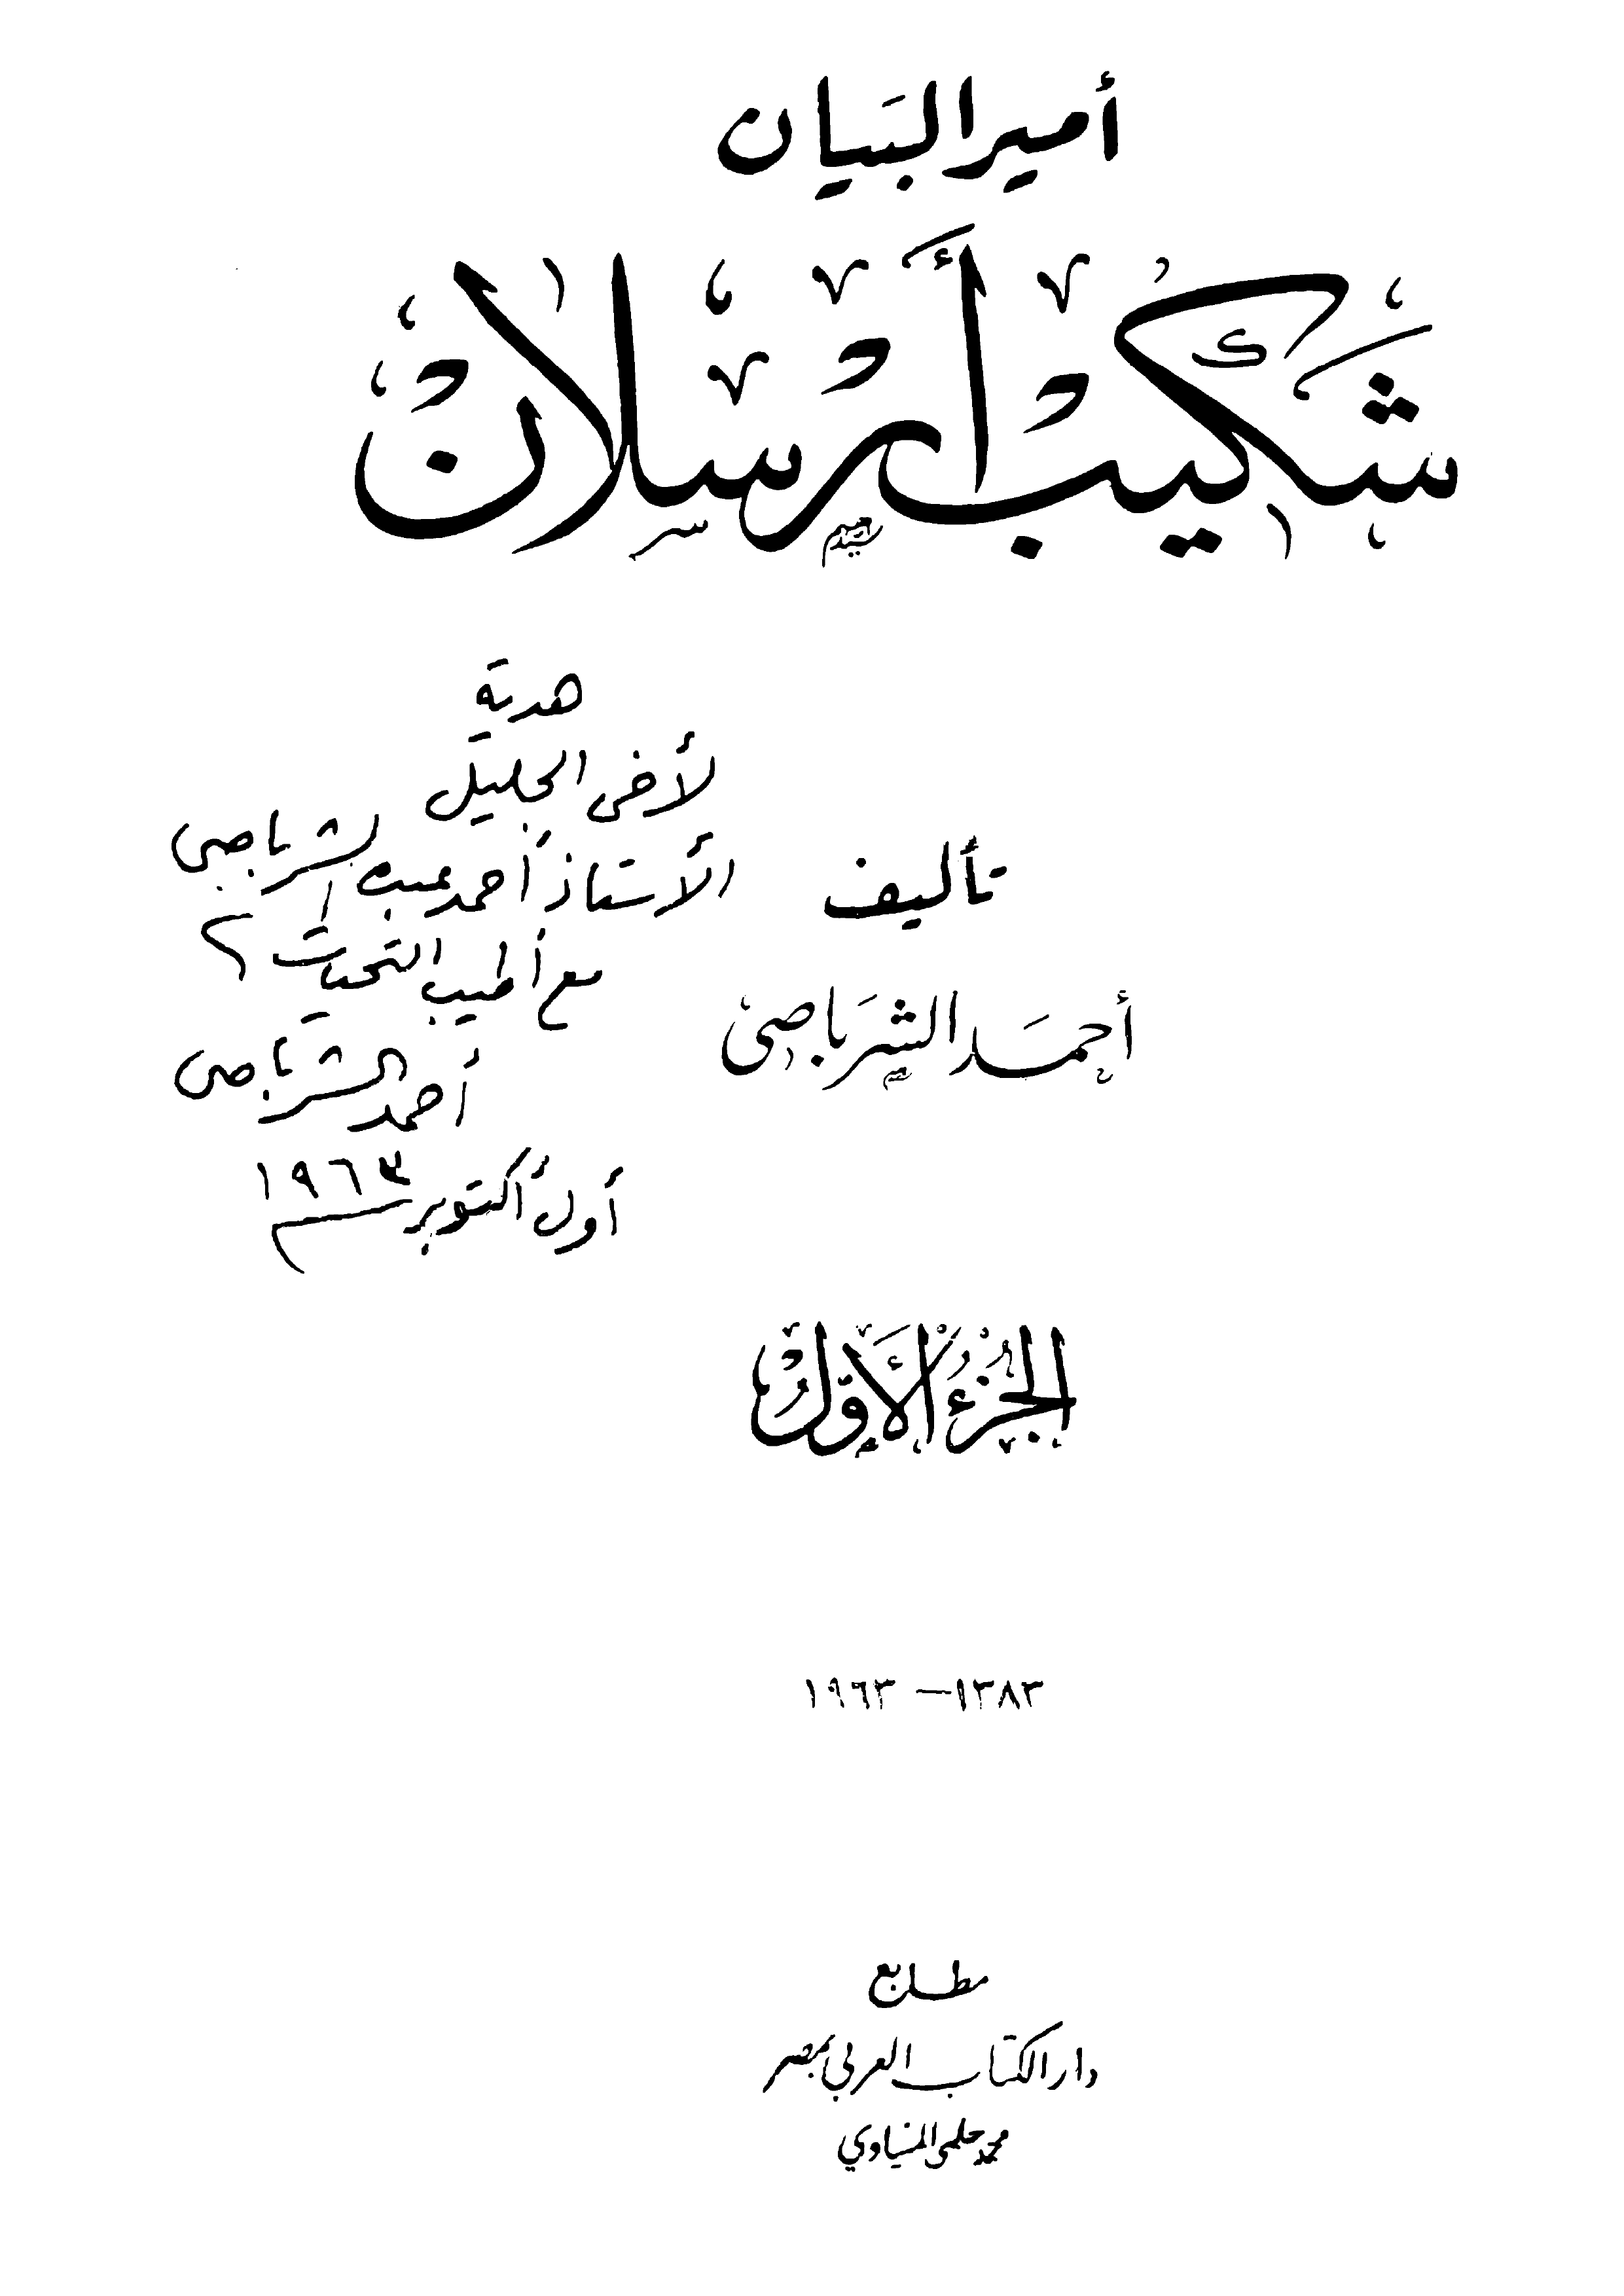 أمير البيان
شكيب أرسلان
هدية
لأخى الجليل
الأستاذ أحمد عبده الشرباصى
مع أطيب التحيات
أحمد الشرباصى
أول أكتوبر ١٩٦٣
تأليف
أحمد الشرباصى
الجزء الأول
١٣٨٣ — ١٩٦٣
مطابع
دار الكتاب العربي بمصر
محمد حلمى المنياوي